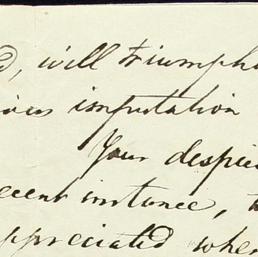 d, will triumph
ious imputation
Your despic
ecent instance, t
ppreciated when